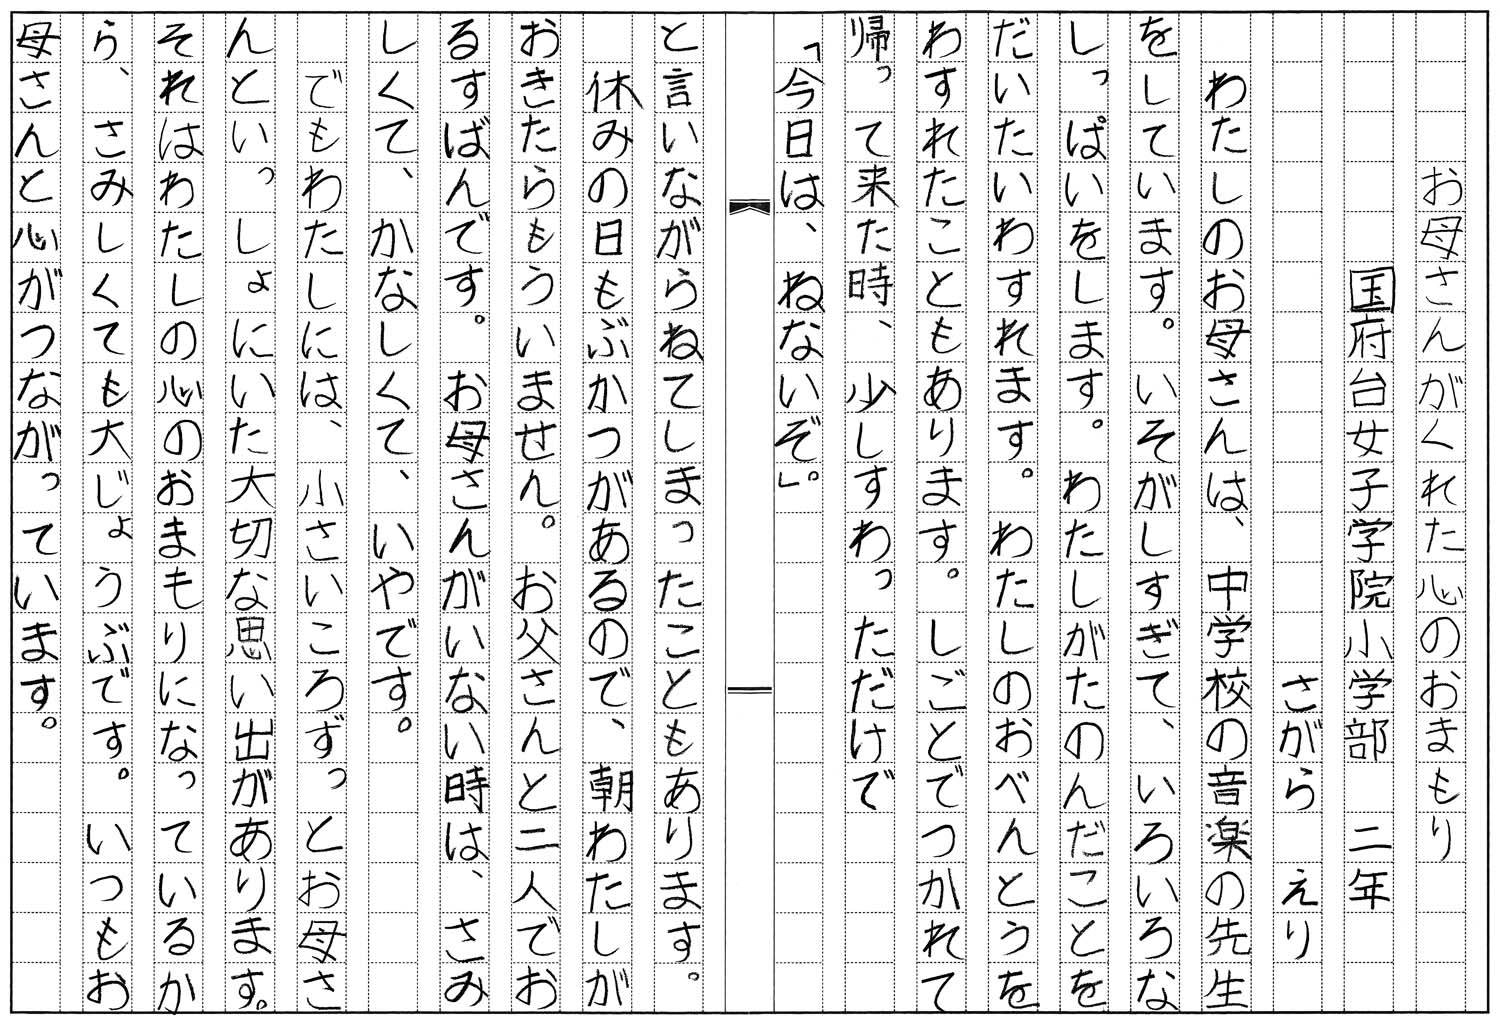 お母さんがくれた心のおまもり
国府台女子学院小学部　二年
さがら　えり
　わたしのお母さんは、中学校の音楽の先生
をしています。いそがしすぎて、いろいろな
しっぱいをします。わたしがたのんだことを
だいたいわすれます。わたしのおべんとうを
わすれたこともあります。しごとでつかれて
帰って来た時、少しすわっただけで
「今日は、ねないぞ」。
と言いながらねてしまったこともあります。
　休みの日もぶかつがあるので、朝わたしが
おきたらもういません。お父さんと二人でお
るすばんです。お母さんがいない時は、さみ
しくて、かなしくて、いやです。
　でもわたしには、小さいころずっとお母さ
んといっしょにいた大切な思い出があります。
それはわたしの心のおまもりになっているか
ら、さみしくても大じょうぶです。いつもお
母さんと心がつながっています。